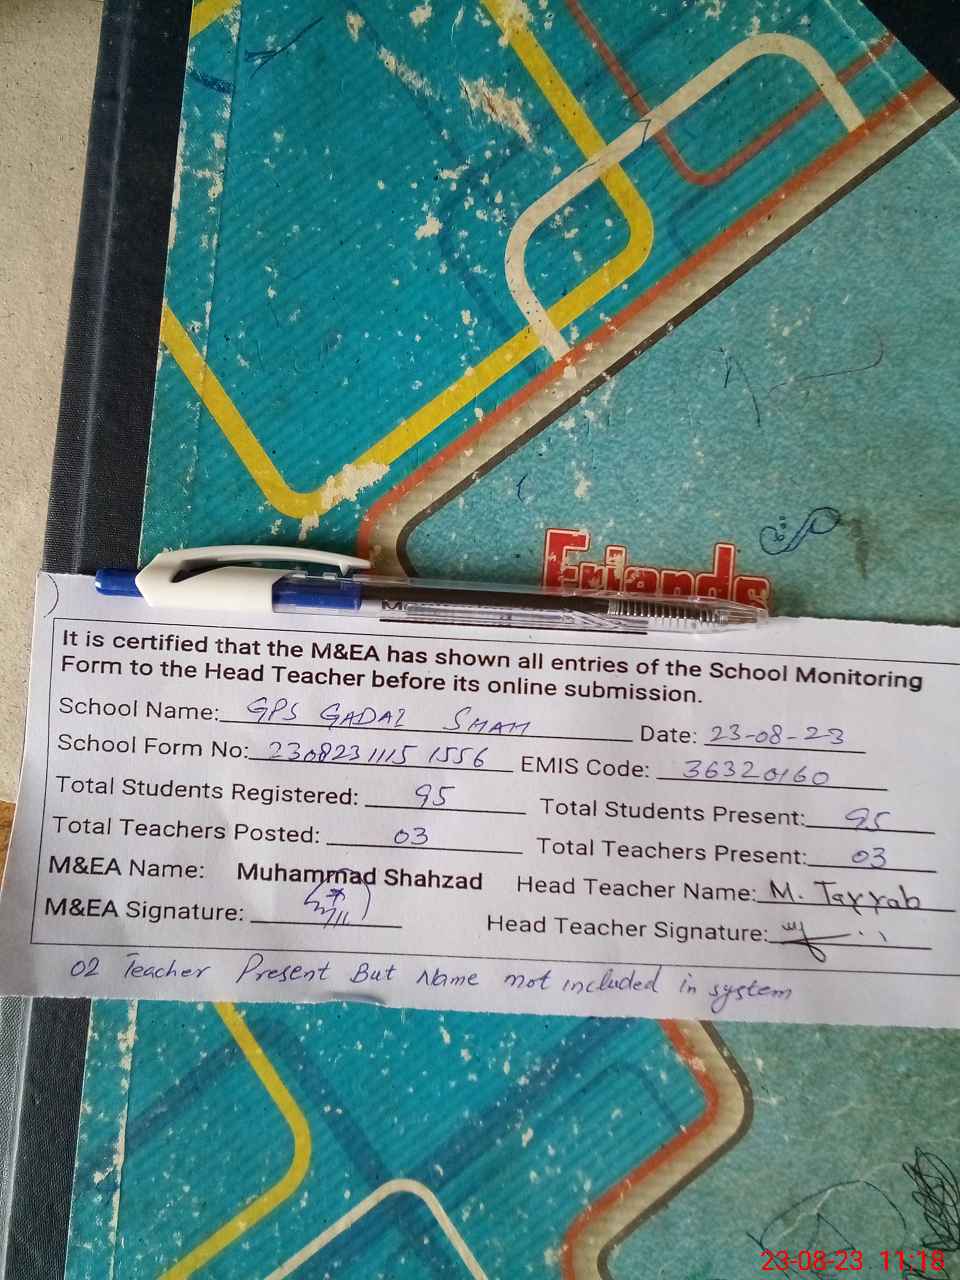 Friends
It is certified that the M&EA has shown all entries of the School Monitoring
Form to the Head Teacher before its online submission.
School Name: GPS GADAI SHAH Date: 23-08-23
School Form No: 23082311151556 EMIS Code: 36320160
Total Students Registered: 95 Total Students Present: 95
Total Teachers Posted: 03 Total Teachers Present: 03
M&EA Name: Muhammad Shahzad Head Teacher Name: M. Tayyab
M&EA Signature: Head Teacher Signature:
02 Teacher Present But Name not included in system
23-08-23 11:18